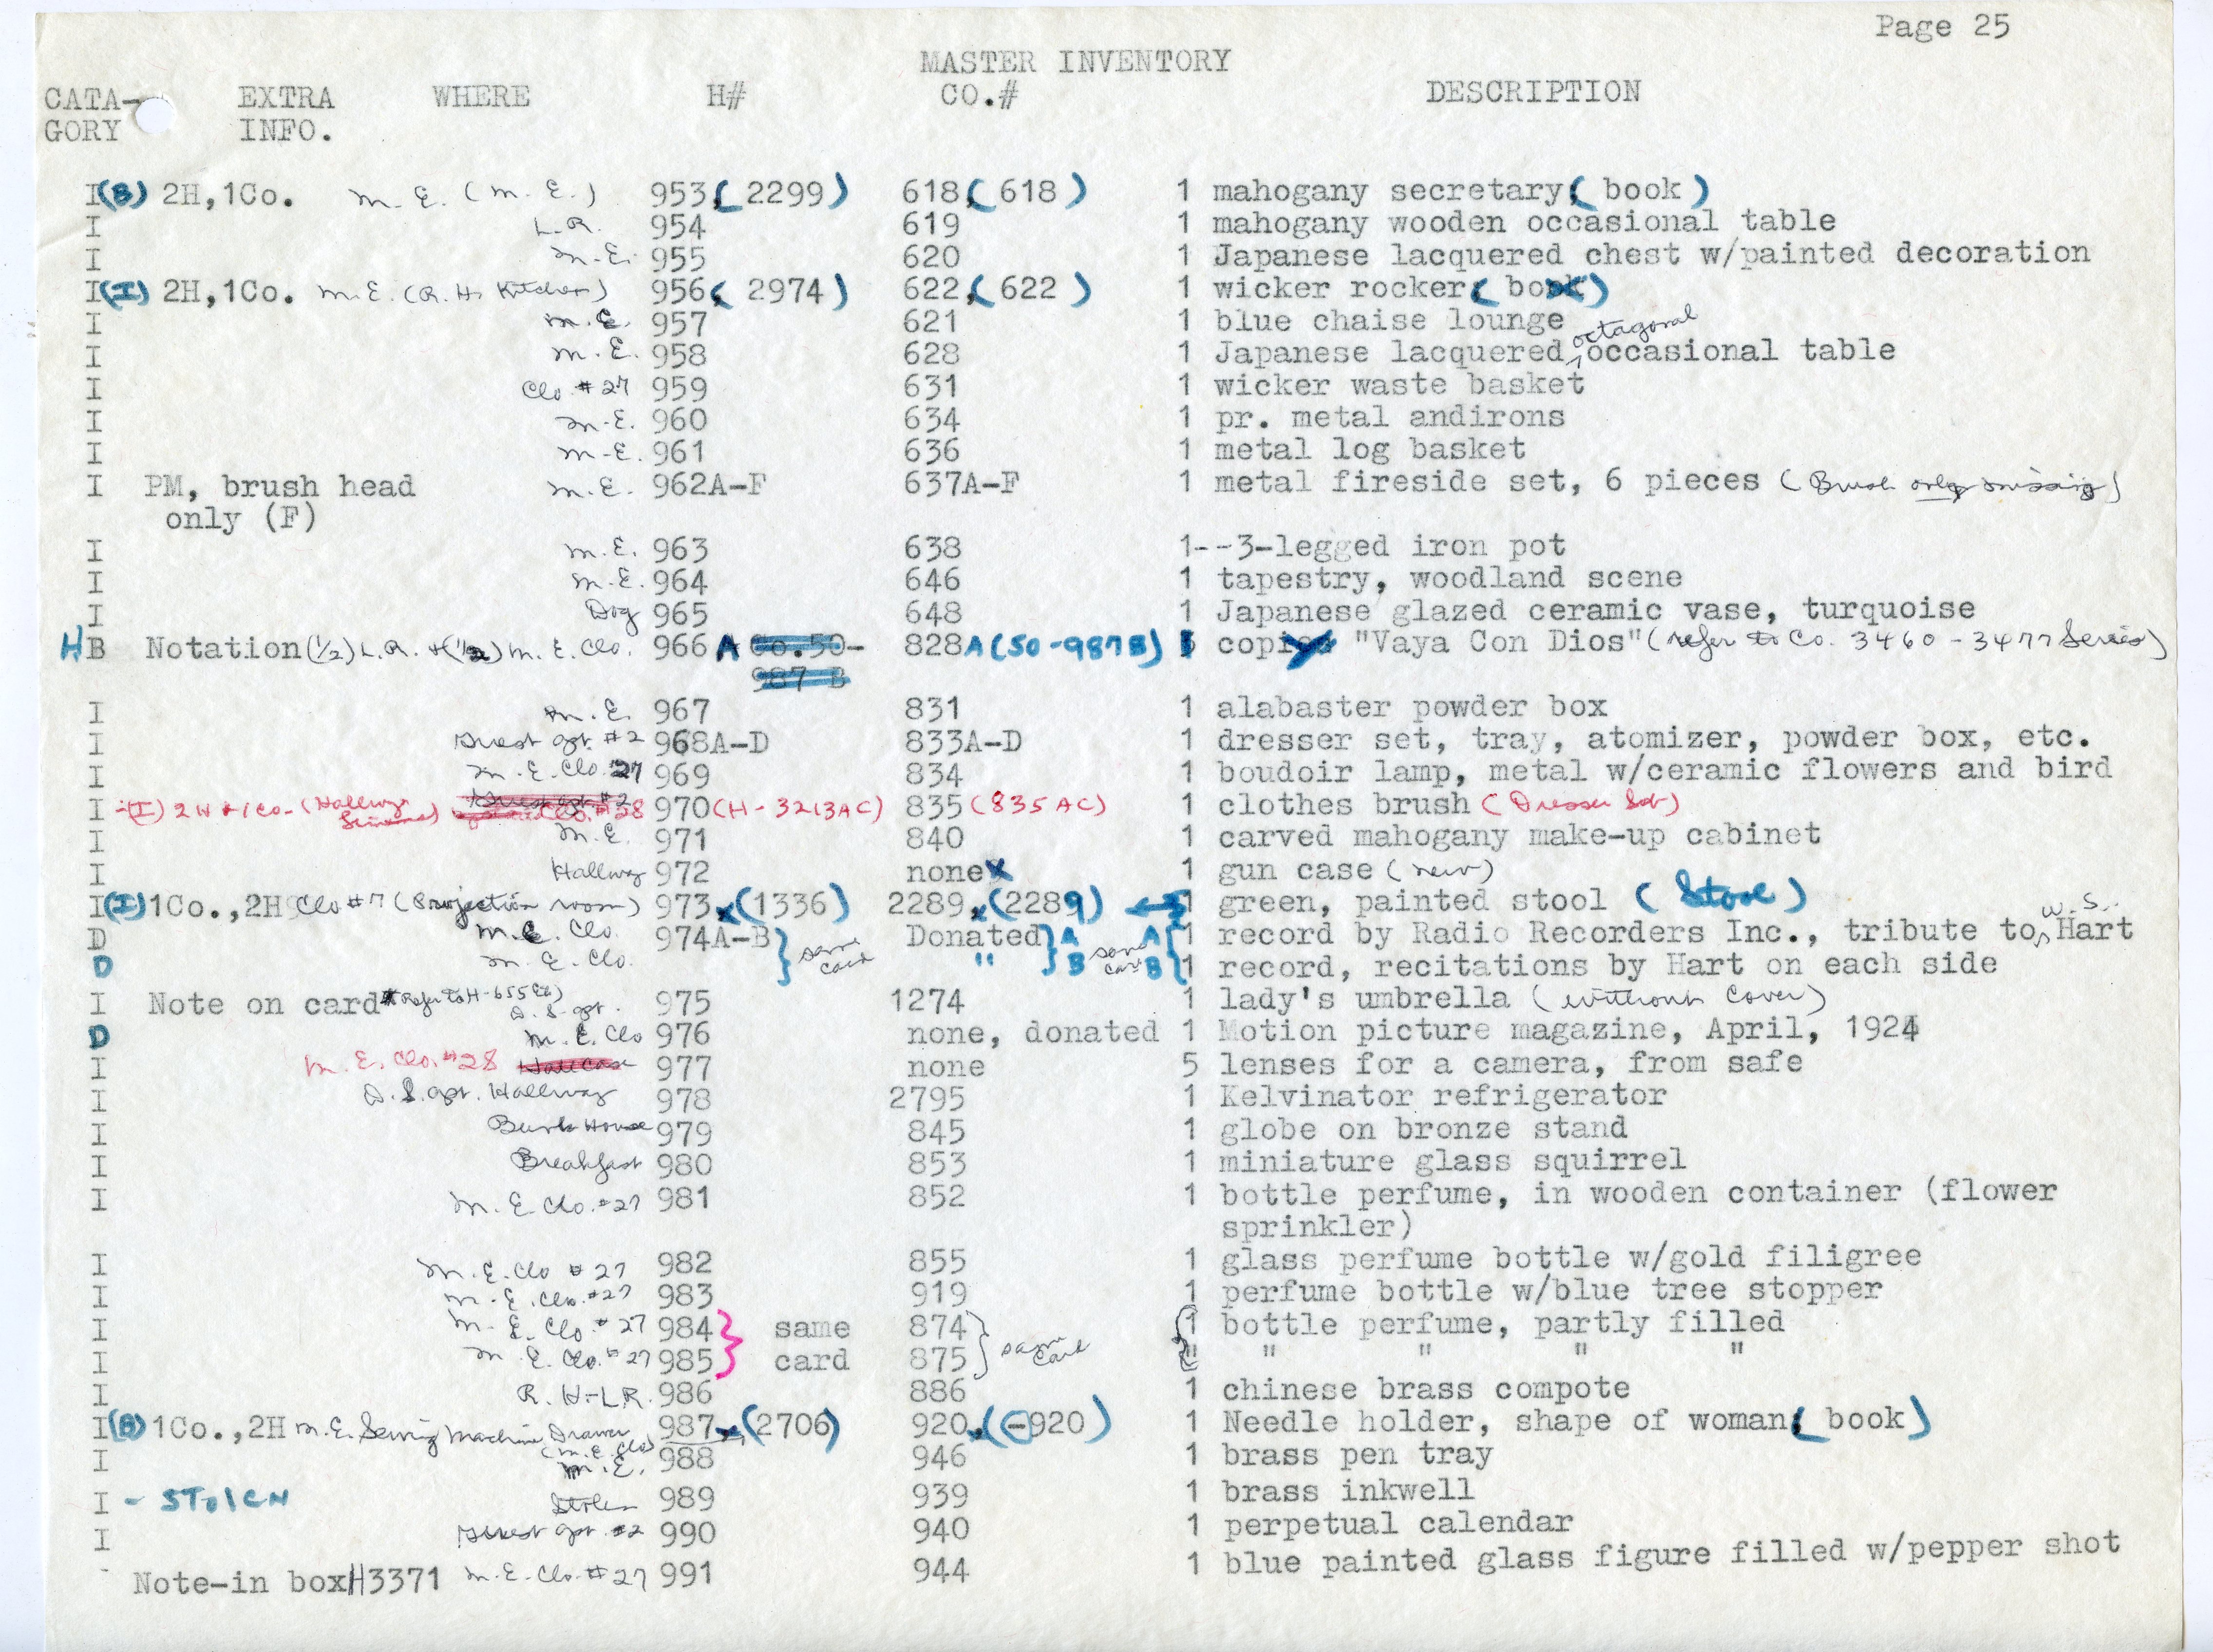 Page 25
MASTER INVENTORY
CATA- EXTRA WHERE H# CO.# DESCRIPTION
GORY INFO.
I(B) 2H,1Co. M.E. (M.E.) 953(2299) 618(618) 1 mahogany secretary(book)
I L.R. 954 619 1 mahogany wooden occasional table
I M.E. 955 620 1 Japanese lacquered chest w/painted decoration
I(I) 2H,1Co. M.E. (R.H. Kitchen) 956(2974) 622(622) 1 wicker rocker(book)
I M.E. 957 621 1 blue chaise lounge
I M.E. 958 628 1 Japanese lacquered octagonal occasional table
I Clo #27 959 631 1 wicker waste basket
I M.E. 960 634 1 pr. metal andirons
I M.E. 961 636 1 metal log basket
I PM, brush head M.E. 962A-F 637A-F 1 metal fireside set, 6 pieces (Brush only missing)
only (F)
I M.E. 963 638 1--3-legged iron pot
I M.E. 964 646 1 tapestry, woodland scene
I Dog 965 648 1 Japanese glazed ceramic vase, turquoise
HB Notation (1/2) L.R. + (1/2) M.E. Clo. 966 A Co.50- 828A(50-987B) copies "Vaya Con Dios" (refer to Co. 3460-3477 Series)
987 B
I M.E. 967 831 1 alabaster powder box
I Guest apt. #2 968A-D 833A-D 1 dresser set, tray, atomizer, powder box, etc.
I M.E. Clo. 27 969 834 1 boudoir lamp, metal w/ceramic flowers and bird
I (I) 2H+1Co- (Hallway #28 970(H-3213AC) 835(835AC) 1 clothes brush (Dresser Set)
I M.E. 971 840 1 carved mahogany make-up cabinet
I Hallway 972 none x 1 gun case (new)
I(I) 1Co.,2H Clo #7 (Projection room) 973x(1336) 2289x(2289) 1 green, painted stool (Stool)
D M.E. Clo. 974A-B} same card Donated} A same card A{1 record by Radio Recorders Inc., tribute to W.S. Hart
D M.E. Clo. " B B 1 record, recitations by Hart on each side
I Note on card (Refer to H-655) D.S. apt. 975 1274 1 lady's umbrella (without cover)
D M.E. Clo 976 none, donated 1 Motion picture magazine, April, 1924
I M.E. Clo. #28 Hall Case 977 none 5 lenses for a camera, from safe
I D.S. apt. Hallway 978 2795 1 Kelvinator refrigerator
I Bunk House 979 845 1 globe on bronze stand
I Breakfast 980 853 1 miniature glass squirrel
I M.E. Clo. #27 981 852 1 bottle perfume, in wooden container (flower
sprinkler)
I M.E. Clo #27 982 855 1 glass perfume bottle w/gold filigree
I M.E. Clo. #27 983 919 1 perfume bottle w/blue tree stopper
I M.E. Clo. #27 984} same 874} same card {1 bottle perfume, partly filled
I M.E. Clo. #27 985} card 875 " " " " "
I R.H-L.R. 986 886 1 chinese brass compote
I(B) 1Co.,2H M.E. Sewing Machine Drawer (M.E. Clo) 987x(2706) 920x(-920) 1 Needle holder, shape of woman(book)
I M.E. 988 946 1 brass pen tray
I - STOLEN Stolen 989 939 1 brass inkwell
I Guest apt. #2 990 940 1 perpetual calendar
- Note-in box H3371 M.E. Clo. #27 991 944 1 blue painted glass figure filled w/pepper shot